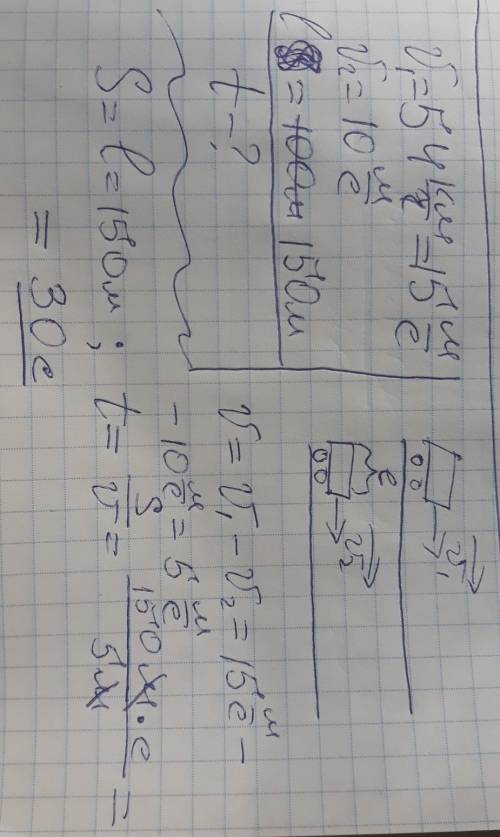 v₁ = 54 км/ч = 15 м/с
v₂ = 10 м/с
l = 100м 150м
t - ?
v₁
l
v₂
v = v₁ - v₂ = 15 м/с -
- 10 м/с = 5 м/с
S = l = 150м ; t = S/v = 150м·с/5м =
= 30с